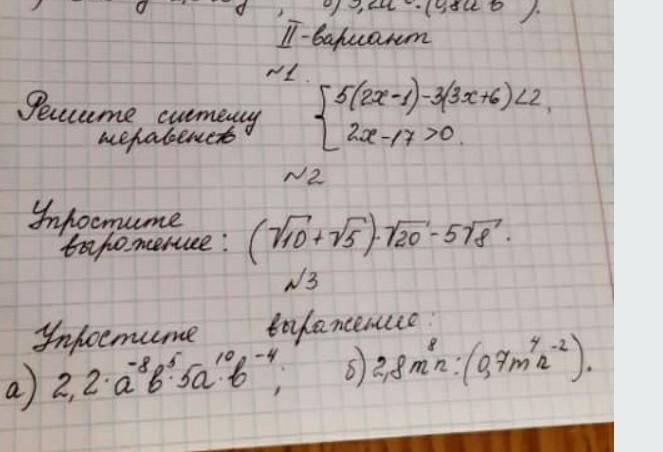 II-вариант
№1.
Решите систему { 5(2x-1)-3(3x+6)<2,
неравенств 2x-17>0.
№2
Упростите
выражение: (√10+√5)·√20-5√8.
№3
Упростите выражение:
а) 2,2·a⁻⁸b⁵·5a¹⁰·b⁻⁴; б) 2,8m⁸n:(0,7m⁴n⁻²).